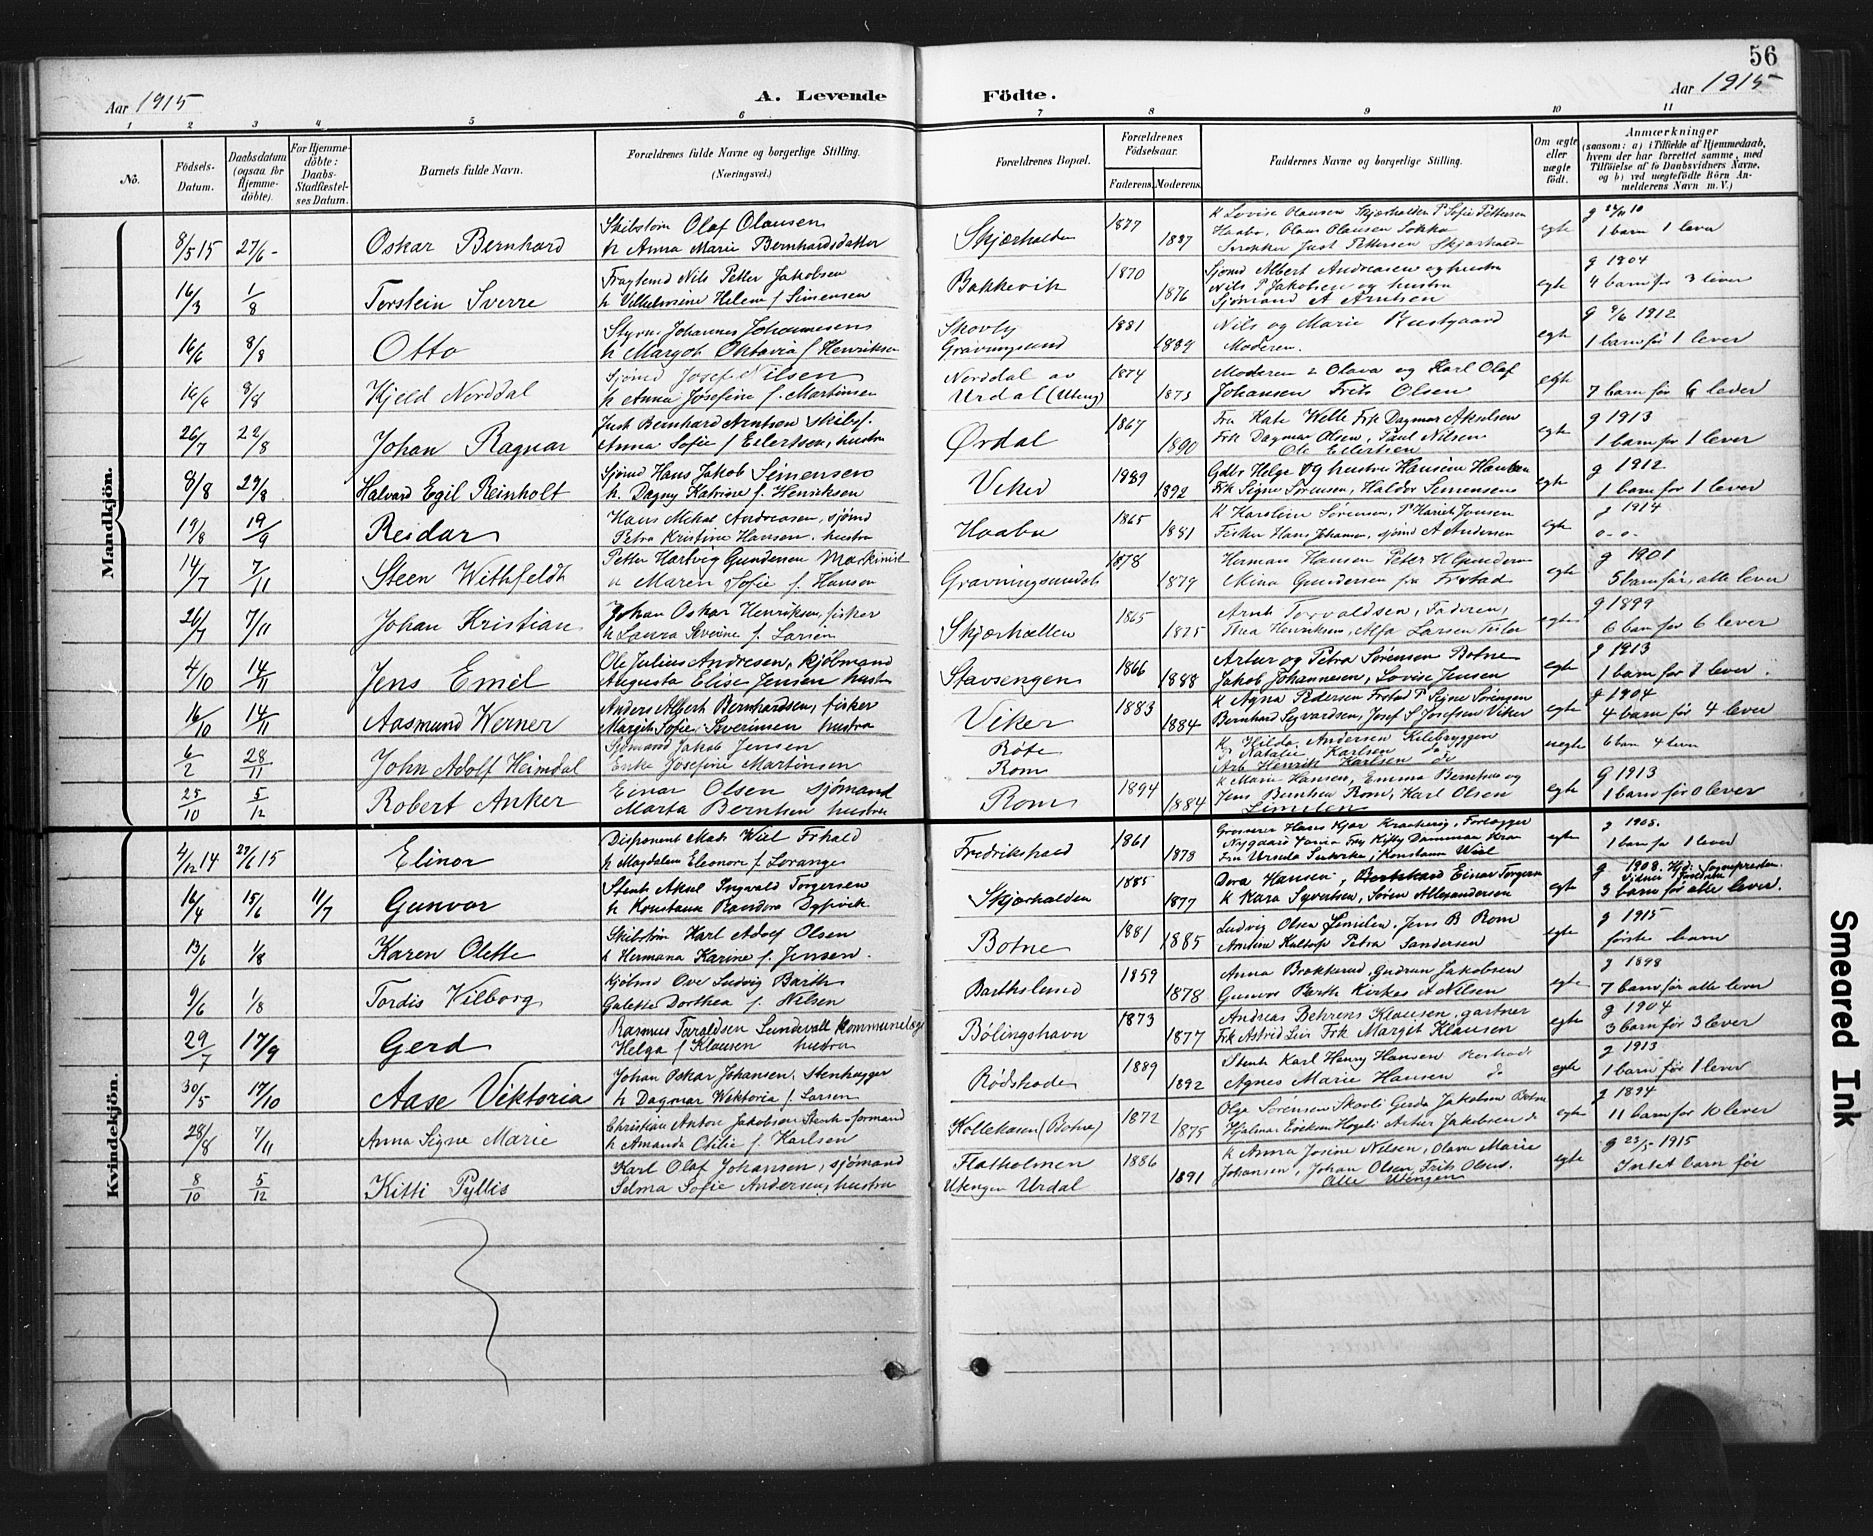 56
Aar 1915
A. Levende
Födte.
Aar 1915
1 2 3 4 5 6 7 8 9 10 11
No.
Födsels-Datum.
Daabsdatum (ogsaa for Hjemmedöbte).
For Hjemmedöbte: Daabs-Stadfæstelses Datum.
Barnets fulde Navn.
Forældrenes fulde Navne og borgerlige Stilling. (Næringsvei.)
Forældrenes Bopæl.
Forældrenes Födselsaar.
Faderens. Moderens.
Faddernes Navne og borgerlige Stilling.
Om ægte eller uægte födt.
Anmærkninger (saasom: a) i Tilfælde af Hjemmedaab, hvem der har forrettet samme, med Tilföielse af to Daabsvidners Navne, og b) ved uægtefödte Börn Anmelderens Navn m. V.)
Mandkjön.
8/5 15 27/6 - Oskar Bernhard
Skibstøm Olaf Olausen
h Anna Marie Bernhardsdatter
Skjærhalden 1877 1887
K Lovise Olausen Skjærhalden P Sofie Pettersen
Haabo, Olaus Olausen Lokka
Snekker Just Pettersen Skjærhalde
egte
1 barn 1 lever
16/3 1/8 Torstein Sverre
Nils Petter Jakobsen
h Vilhelmine Helene f Simensen
Bakkevik 1870 1876
Sjømd Albert Andreasen og hustru
Nils P Jakobsen og hustru
Sjømand A Arntsen
egte
g 1904
4 barn før 3 lever
16/6 8/8 Otto
Styrm Johannes Johannesen
h Margot Oktavia f Henriksen
Skovly
Gravningsund 1881 1889
Nils og Marie Kustgaard
Moderen.
egte
g 9/6 1912
1 barn før 1 lever
16/6 8/8 Kjeld Norddal
Sjømd Josef Nilsen
h Anna Josefine f. Martinsen
Norddal av
Urdal (Uteng) 1874 1873
Moderen 2 Olava og Karl Olaf
Johansen Frits Olsen
egte
7 barn før 6 lever
26/7 22/8 Johan Ragnar
Just Bernhard Arntsen skibsf.
Anna Sofie f Eilertsen, hustru
Ørdal 1867 1890
Fru Kate Welle Frk Dagmar Akselsen
Frk Dagmar Olsen, Paul Nilsen
Ole Eilertsen
egte
g 1913
1 barn før 1 lever
8/8 29/8 Halvard Egil Reinholt
Sjømd Hans Jakob Simensen
h. Dagny Katrine f. Henriksen
Viker 1889 1892
Gdbr Helge og hustru Hansine Hansen
Frk Signe Sørensen, Haldor Simensen
egte
g 1912
1 barn før 1 lever
19/8 19/9 Reidar
Hans Mikal Andreasen, sjømd
Petra Kristine Hansen, hustru
Haabu 1865 1881
K Karoline Sørensen, P Harich Jensen
Fisker Hans Johansen, sjømd A Andersen
egte
g 1914
o - o -
14/7 7/11 Steen Withfeldt
Petter Hartvig Gundersen Maskinist
h Maren Sofie f. Hansen
Gravningsundet 1878 1879
Herman Hansen Peter H Gundersen
Mina Gundersen fra Frstad
egte
g 1901
5 barn før, alle lever
26/7 7/11 Johan Kristian
Johan Oskar Henriksen, fisker
h Laura Severine f. Larsen
Skjærhallen 1865 1875
Arnt Torvaldsen, Faderen,
Thea Henriksen, Alfa Larsen
egte
g 1899
6 barn før 6 lever
4/10 14/11 Jens Emil
Ole Julius Andresen, kjøbmand
Augusta Elise Jensen hustru
Stavsengen 1866 1888
Artur og Petra Sørensen Botne
Jakob Johannesen, Lovise Jensen
egte
g 1913
1 barn før 1 lever.
16/10 14/11 Aasmund Werner
Anders Albert Bernhardsen, fisker
Margit Sofie Severinsen hustru
Viker 1883 1884
K Agna Pedersen Frstad P Signe Sørensen
Bernhard Syvardsen, Josef S Josefsen Viker
egte
g 1904
4 barn før 4 lever
6/2 28/11 John Adolf Heimdal
Sjømand Jakob Jensen
Enke Josefine Martinsen
Bøte
Rom
K Hilda Andersen Kilebryggen
Natalie Karlsen do
Arb Henrik Karlsen do
uegte
6 barn 4 lever
25/10 5/12 Robert Anker
Einar Olsen sjømand
Marta Berntsen hustru
Rom 1894 1884
K Marie Hansen, Emma Berntsen og
Jens Berntsen Rom, Karl Olsen
Similen
egte
g 1913
1 barn før 0 lever
Kvindekjön.
4/12 14 27/6 15 Elinor
Disponent Mads Wiel Frhald
h Magdalene Eleonore f. Lorange
Fredrikshald 1861 1873
Grosserer Hans Kjær
Konstanse Wiel
egte
g 1905.
1 barn før 1 lever
16/4 15/6 11/7 Gunvor
Stenh Aksel Ingvald Torgersen
h Konstanse Randora Dypvik
Skjærhalden 1885 1877
Dora Hansen, Einar Torgersen
K Kara Syvertsen, Søren Allexandersen
egte
g 1908. Hjd. Sogneprestem
3 barn før alle lever.
13/6 1/8 Karen Olette
Skibstøm Karl Adolf Olsen
h Hermana Karine f. Jensen.
Botne 1881 1885
Ludvig Olsen Similen. Jens B Rom
Petra Sandersen
egte
g 1915
første barn
9/6 1/8 Tordis Vilborg
Kjøbmd Ove Ludvig Barth
Galette Dorthea f. Nilsen
Barthslund 1859 1878
Anna Brekkerud, Gudrun Jakobsen
Gunvor Barth Kirkøs A Nilsen
egte
g 1898
7 barn før alle lever
29/7 17/9 Gerd
Rasmus Taraldsen Sundevall kommunelæge
Helga f Klausen hustru
Bølingshavn 1873 1877
Andreas Behrens Klausen, gartner
Frk Astrid Lie Frk Margit Klausen
egte
g 1904
3 barn før 3 lever
30/5 17/10 Aase Viktoria
Johan Oskar Johansen, Stenhugger
h Dagmar Wiktoria f. Larsen
Rødshode 1889 1892
Stenh Karl Henry Hansen
Agnes Marie Hansen do
egte
g 1913
1 barn før 1 lever
28/8 7/11 Anna Signe Marie
Christian Anton Jakobsen Stenh. formand
h Amanda Otilie f. Karlsen
Kollehaven (Botne) 1872 1875
Olga Sørensen Skovli Gerda Jakobsen Botne
Hjalmar Eriksen Høgeli Artur Jakobsen do
egte
g 1894
11 barn før 10 lever
8/10 5/12 Kitti Pyllis
Karl Olaf Johansen, sjømand
Selma Sofie Andersen, hustru
Flatholmen
Utengen Urdal 1886 1891
K Anna Josine Nilsen, Olava Marie
Johansen, Johan Olsen, Frits Olsen.
Alle Utengen
egte
g 23/5 1915
Intet barn før
Smeared Ink